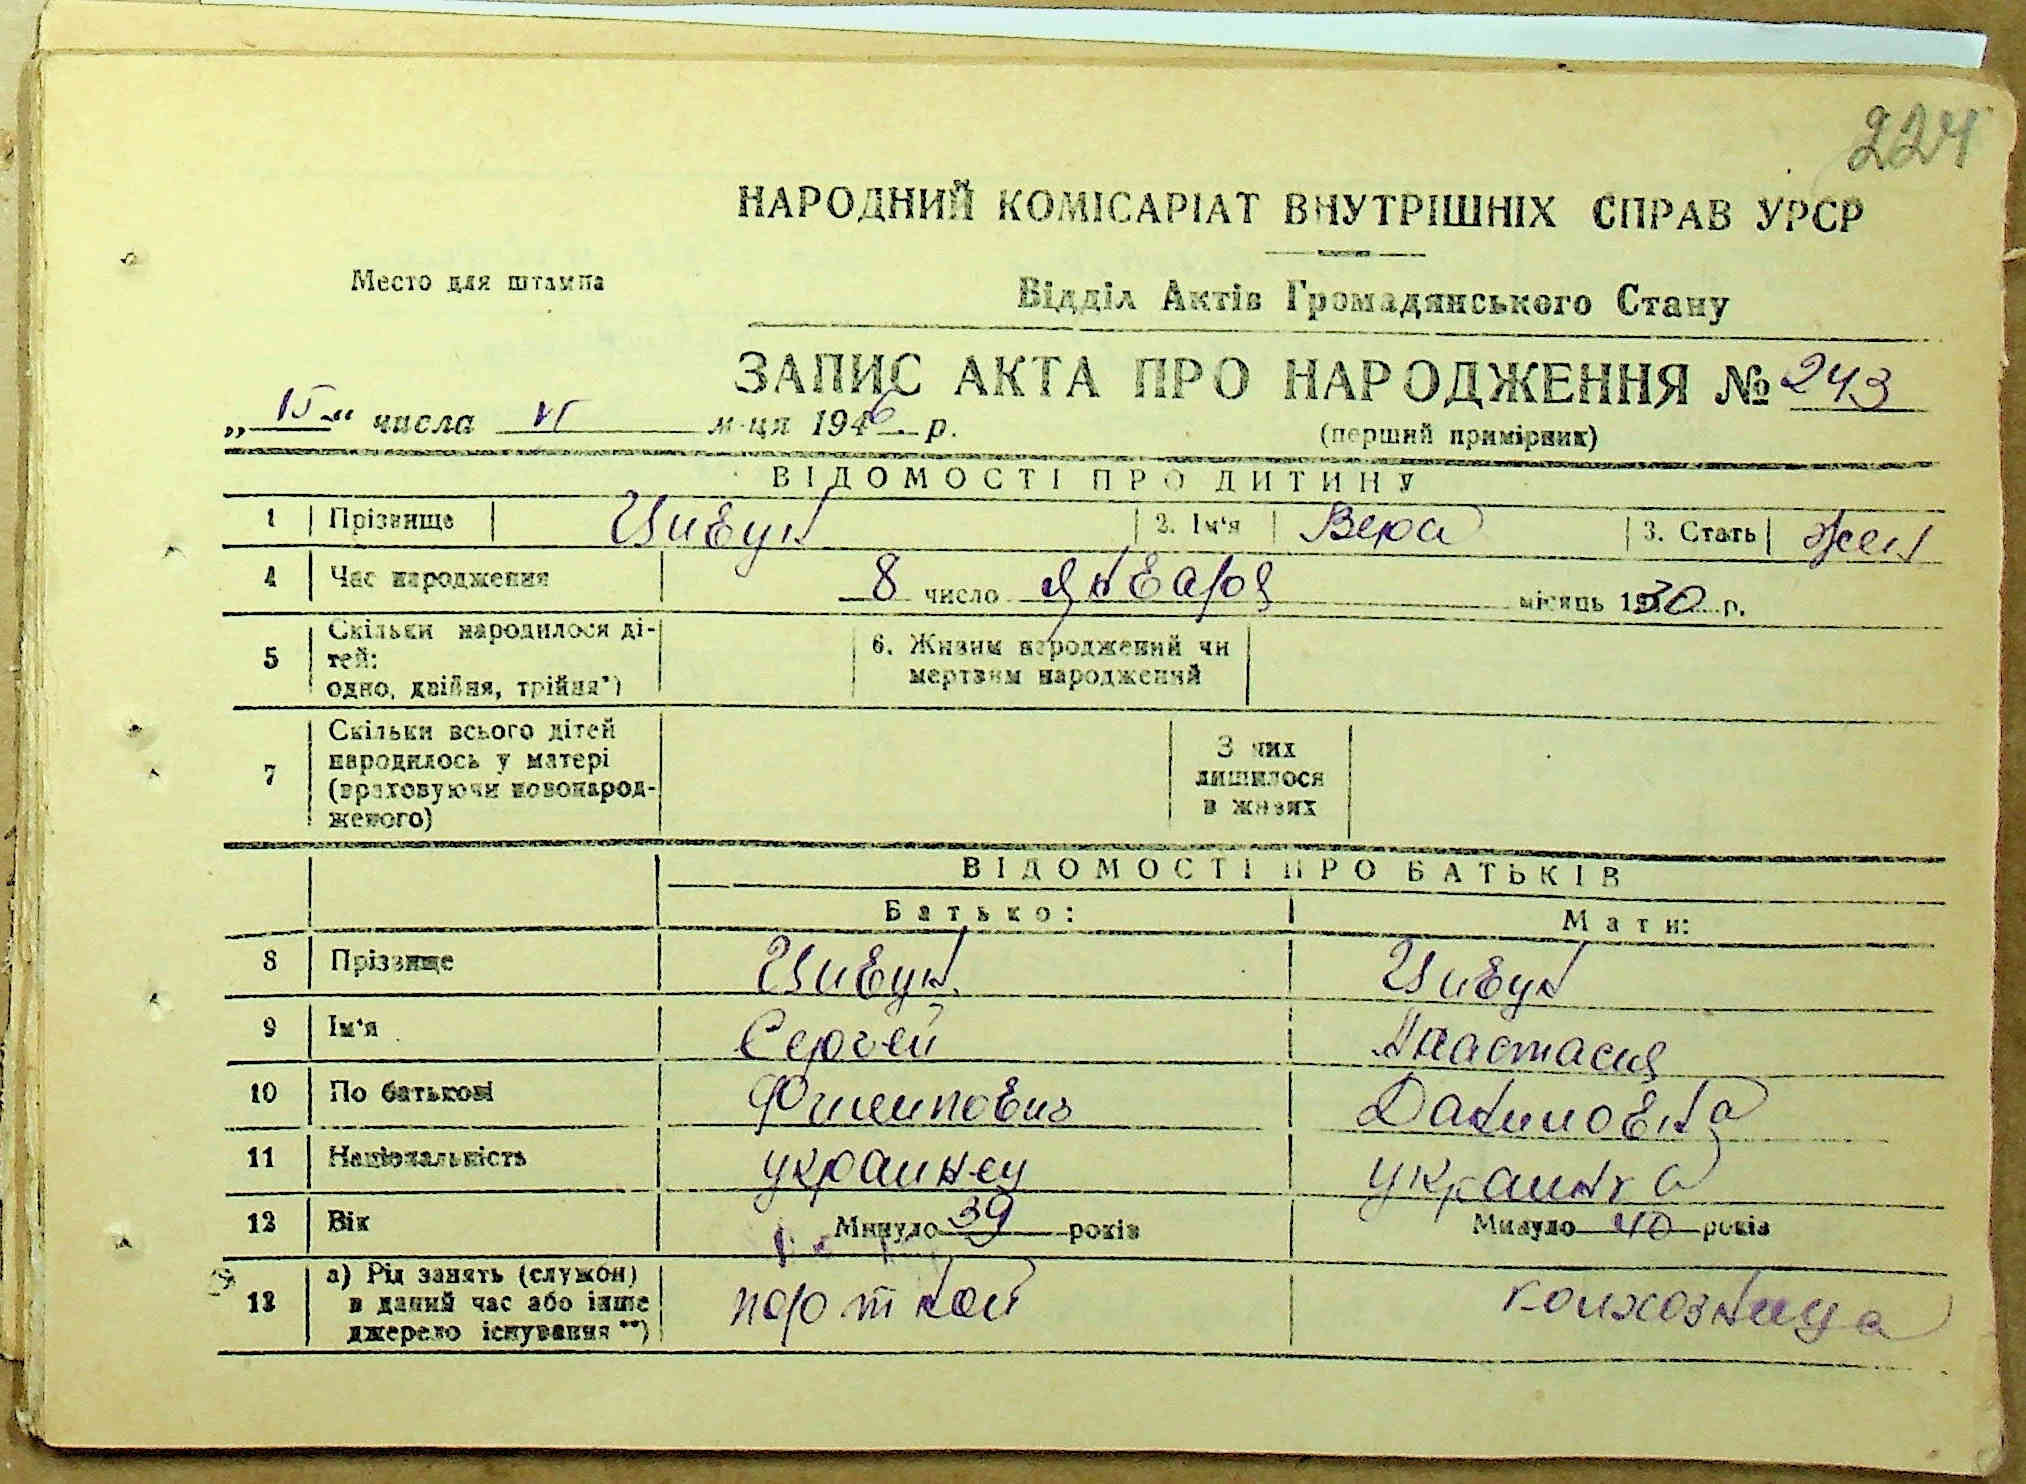 224
НАРОДНИЙ КОМІСАРІАТ ВНУТРІШНІХ СПРАВ УРСР
Место для штампа
Відділ Актів Громадянського Стану
ЗАПИС АКТА ПРО НАРОДЖЕННЯ № 243
„15“ числа VI м-ця 1946 р.
(перший примірник)
ВІДОМОСТІ ПРО ДИТИНУ
1 Прізвище Цивун 2. Ім'я Вера 3. Стать жен
4 Час народження 8 число Января місяць 1930 р.
5 Скільки народилося ді-
тей:
одно, двійня, трійня*)
6. Живим народжений чи
мертвим народжений
7 Скільки всього дітей
народилось у матері
(враховуючи новонарод-
женого)
З них
лишилося
в живих
ВІДОМОСТІ ПРО БАТЬКІВ
Батько: Мати:
8 Прізвище Цивун Цивун
9 Ім'я Сергей Анастасия
10 По батькові Филипович Даниловна
11 Національність украинец украинка
12 Вік Минуло 39 років Минуло 40 років
13 а) Рід занять (служби)
в даний час або інше
джерело існування **)
портной колхозница